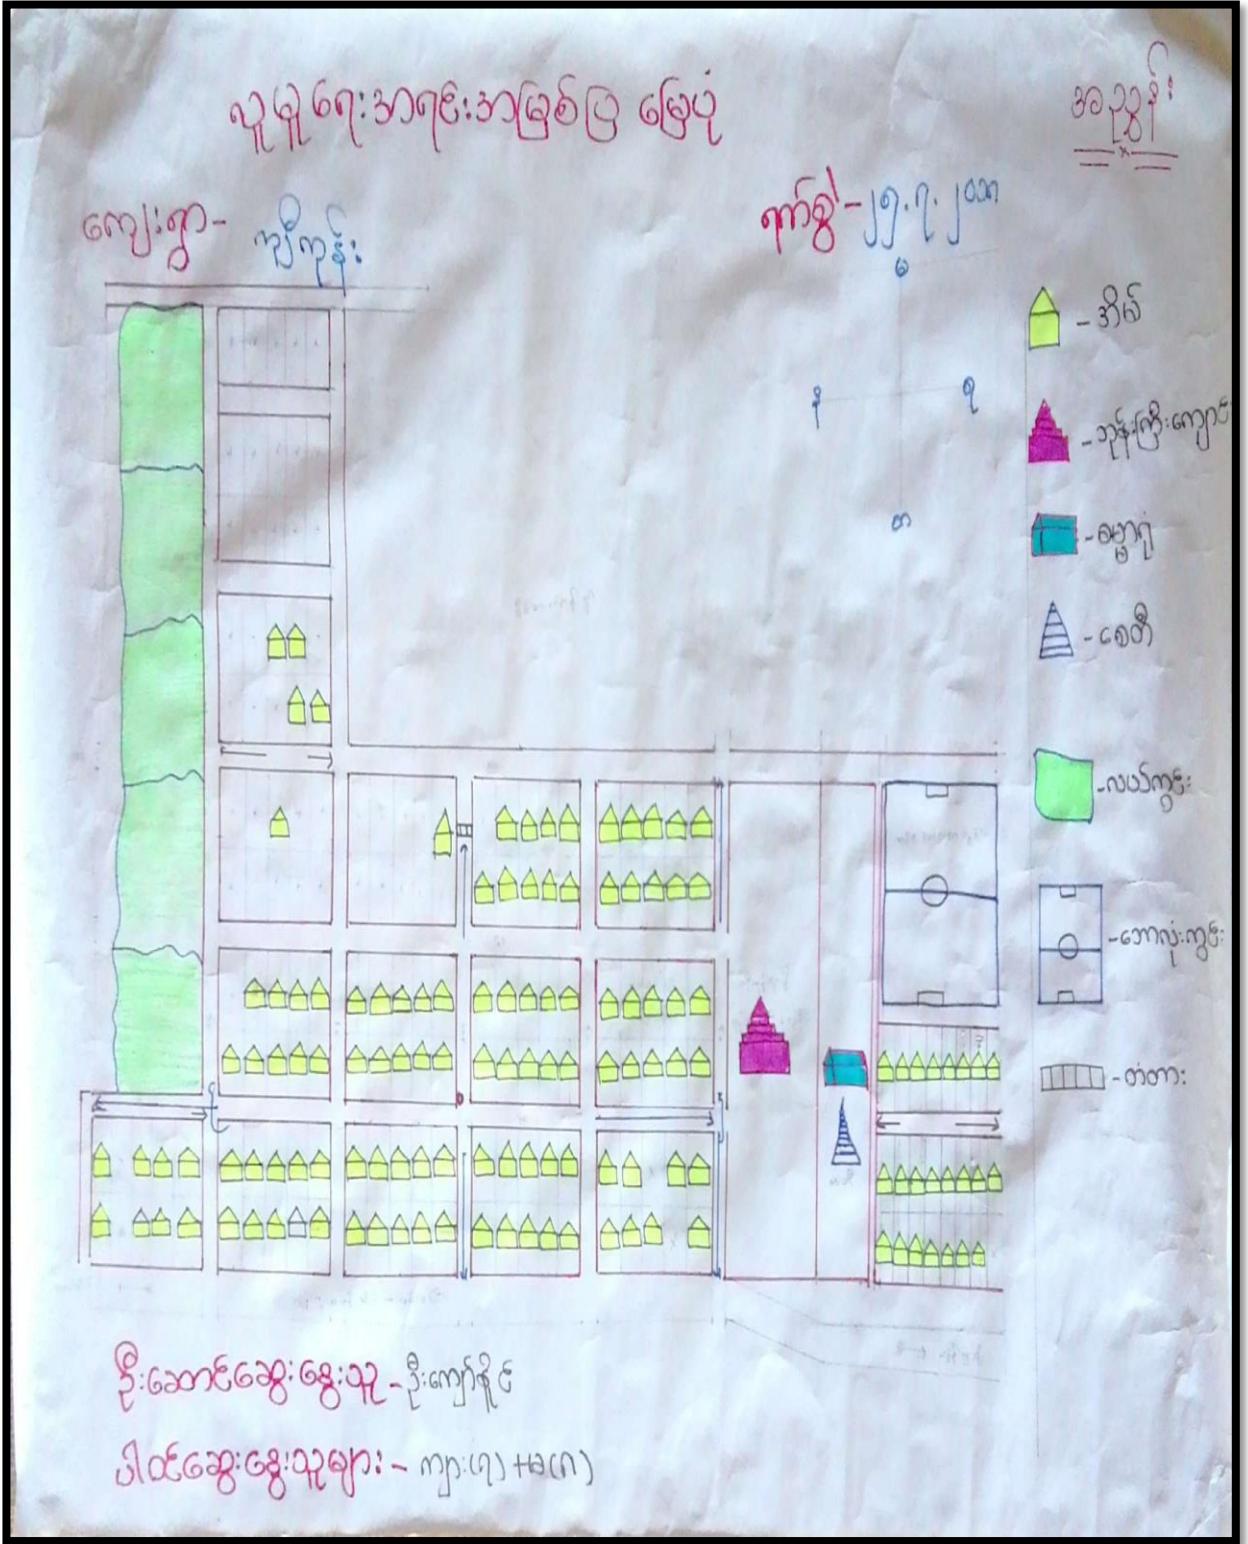 လူမှုရေးအရင်းအမြစ်ပြ မြေပုံ
အညွှန်း
ကျေးရွာ- ကျီကုန်း
ရက်စွဲ-၂၅.၇.၂၀၁၈
မ
နိ
ရှ
တ
-အိမ်
-ဘုန်းကြီးကျောင်း
-ဓမ္မာရုံ
-စေတီ
-လယ်ကွင်း
-ဘောလုံးကွင်း
-တံတား
ဦးဆောင်ဆွေးနွေးသူ-ဦးကျော်နိုင်
ပါဝင်ဆွေးနွေးသူများ- ကျား(၇)+မ(၈)